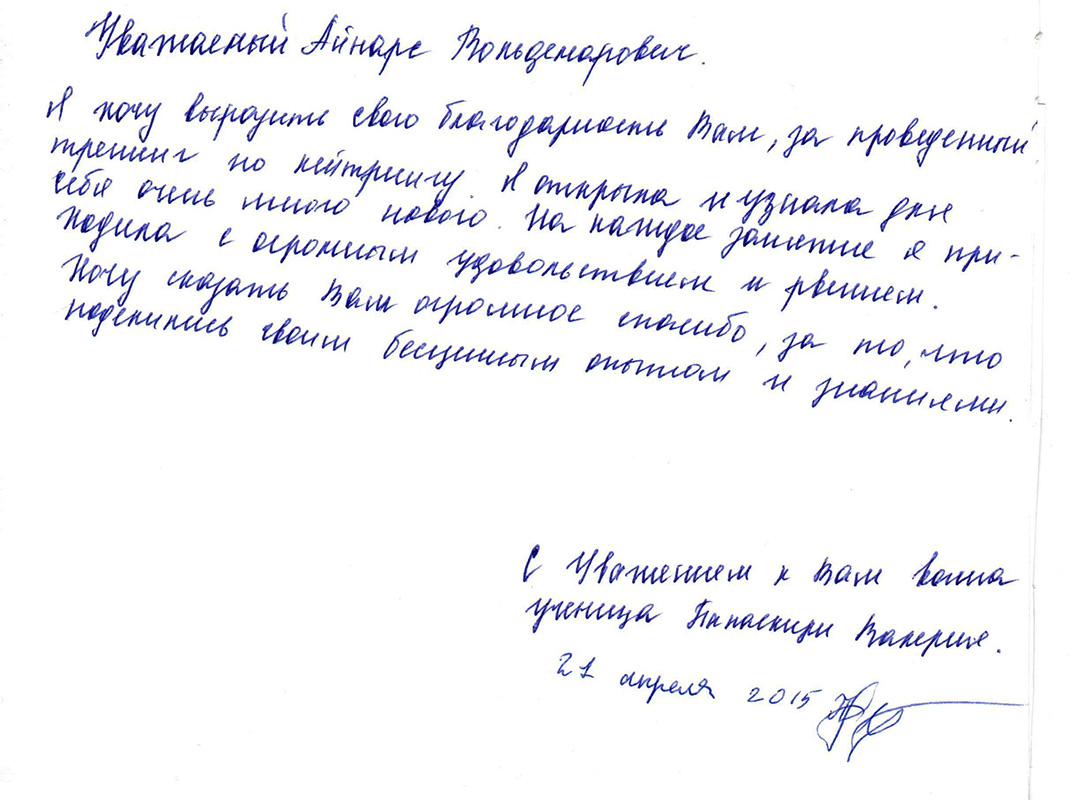 Уважаемый Айнарс Вольдемарович.
Я хочу выразить свою благодарность Вам, за проведенный
тренинг по кейтрингу. Я открыла и узнала для
себя очень много нового. На каждое занятие я при-
ходила с огромным удовольствием и рвением.
Хочу сказать Вам огромное спасибо, за то, что
поделились своим бесценным опытом и знаниями.
С Уважением к Вам ваша
ученица Папаскири Валерия.
21 апреля 2015